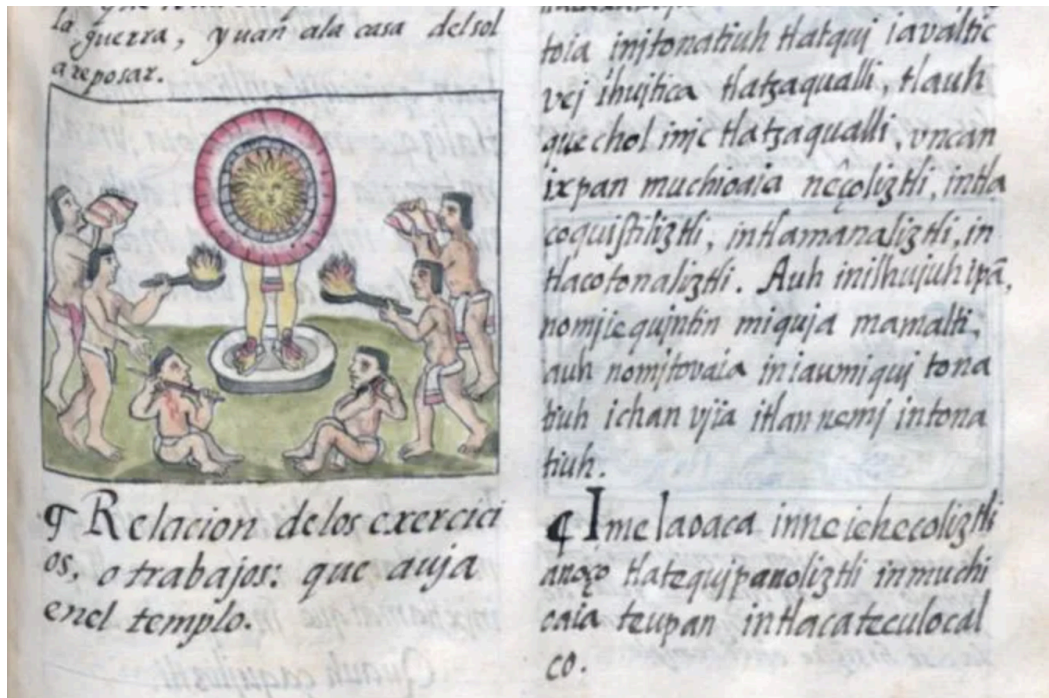 la guerra, y uan ala casa del sol
a reposar.
¶ Relacion delos exercici
os, o trabajos: que auja
enel templo.
toia injtonatiuh tlatquj iavaltic
vej ihujtica tlatzaqualli, tlauh
quechol injc tlatzaqualli, vncan
ixpan muchioaia neçoliztli, intla
coquistiliztli, intlamanaliztli, in
tlacotonaliztli. Auh inilhujuh ipã,
nomjiequintin miquja mamalti,
auh nomjtovaia iniaumiquj tona
tiuh ichan vjia itlan nemj intona
tiuh.
¶ Imelaoaca inneiehecoliztli
anoço tlatequjpanoliztli inmuchi
oaia teupan intlacateculocal
co.